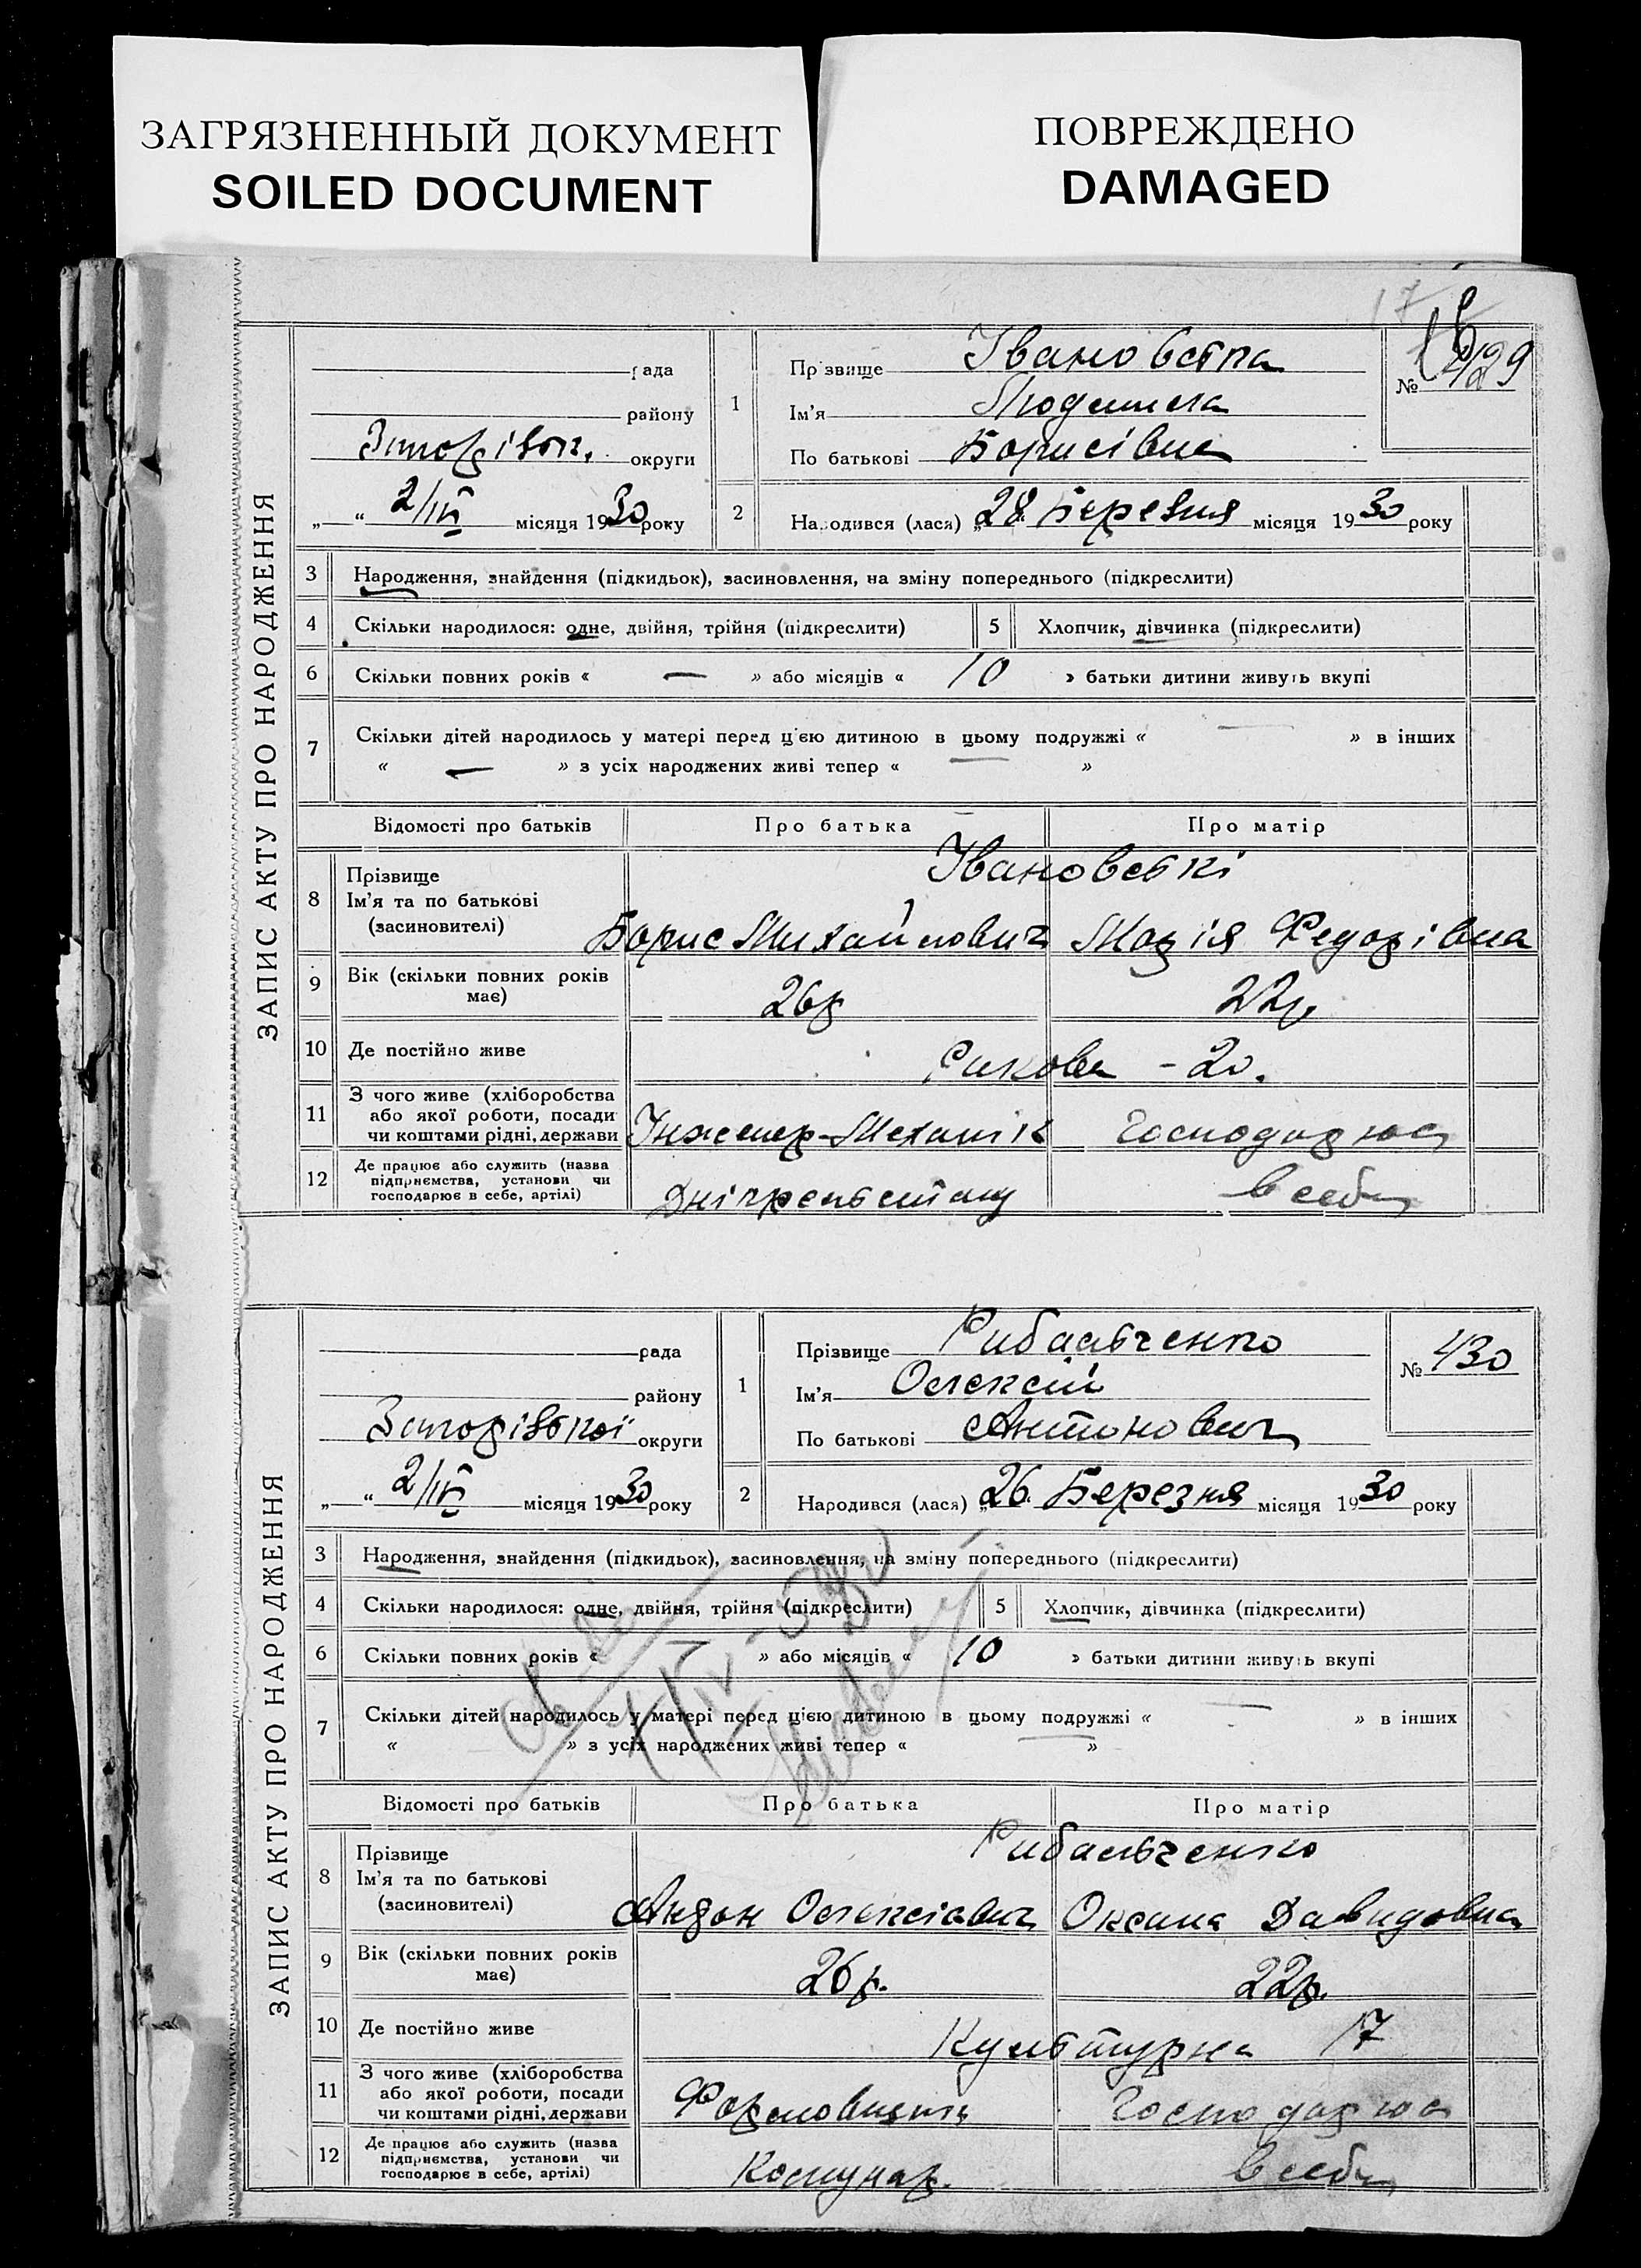 ЗАГРЯЗНЕННЫЙ ДОКУМЕНТ
SOILED DOCUMENT
ПОВРЕЖДЕНО
DAMAGED
ЗАПИС АКТУ ПРО НАРОДЖЕННЯ
рада
району
округи
„ “ 2/IV місяця 1930 року
1 Прізвище Івановська
Ім'я Людмила
По батькові Борисівна
№ 429
2 Народився (лася) „28 Березня місяця 1930 року
3 Народження, знайдення (підкидьок), засиновлення, на зміну попереднього (підкреслити)
4 Скільки народилося: одне, двійня, трійня (підкреслити) 5 Хлопчик, дівчинка (підкреслити)
6 Скільки повних років « — » або місяців « 10 » батьки дитини живуть вкупі
7 Скільки дітей народилось у матері перед цією дитиною в цьому подружжі « — » в інших
« — » з усіх народжених живі тепер « — »
Відомості про батьків Про батька Про матір
8 Прізвище Івановські
Ім'я та по батькові
(засиновителі) Борис Михайлович Марія Федорівна
9 Вік (скільки повних років має) 26р 22р
10 Де постійно живе – 20.
11 З чого живе (хліборобства
або якої роботи, посади
чи коштами рідні, держави Інженер-Механік Господарює
12 Де працює або служить (назва
підприємства, установи чи
господарює в себе, артілі) в себе
ЗАПИС АКТУ ПРО НАРОДЖЕННЯ
рада
району
Запорізької округи
„ “ 2/IV місяця 1930 року
1 Прізвище Рибальченко
Ім'я Олексій
По батькові Антонович
№ 430
2 Народився (лася) „26. Березня місяця 1930 року
3 Народження, знайдення (підкидьок), засиновлення, на зміну попереднього (підкреслити)
4 Скільки народилося: одне, двійня, трійня (підкреслити) 5 Хлопчик, дівчинка (підкреслити)
6 Скільки повних років « » або місяців « 10 » батьки дитини живуть вкупі
7 Скільки дітей народилось у матері перед цією дитиною в цьому подружжі « — » в інших
« » з усіх народжених живі тепер « — »
Відомості про батьків Про батька Про матір
8 Прізвище Рибальченко
Ім'я та по батькові
(засиновителі) Андон Олексіевич Оксана Давидовна
9 Вік (скільки повних років
має) 26р. 22р.
10 Де постійно живе Культурна 17
11 З чого живе (хліборобства
або якої роботи, посади
чи коштами рідні, держави Формовщик Господарює
12 Де працює або служить (назва
підприємства, установи чи
господарює в себе, артілі) Комунар. в себе